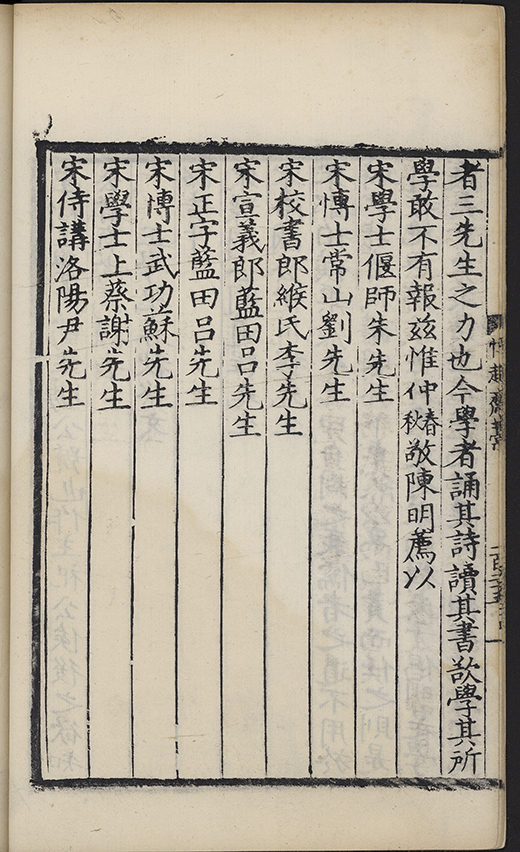 者三先生之力也今學者誦其詩讀其書欲學其所
學敢不有報茲惟仲春秋敬陳明薦以
宋學士偃師朱先生
宋博士常山劉先生
宋校書郎緱氏李先生
宋宣義郎藍田呂先生
宋正字藍田呂先生
宋博士武功蘇先生
宋學士上蔡謝先生
宋侍講洛陽尹先生